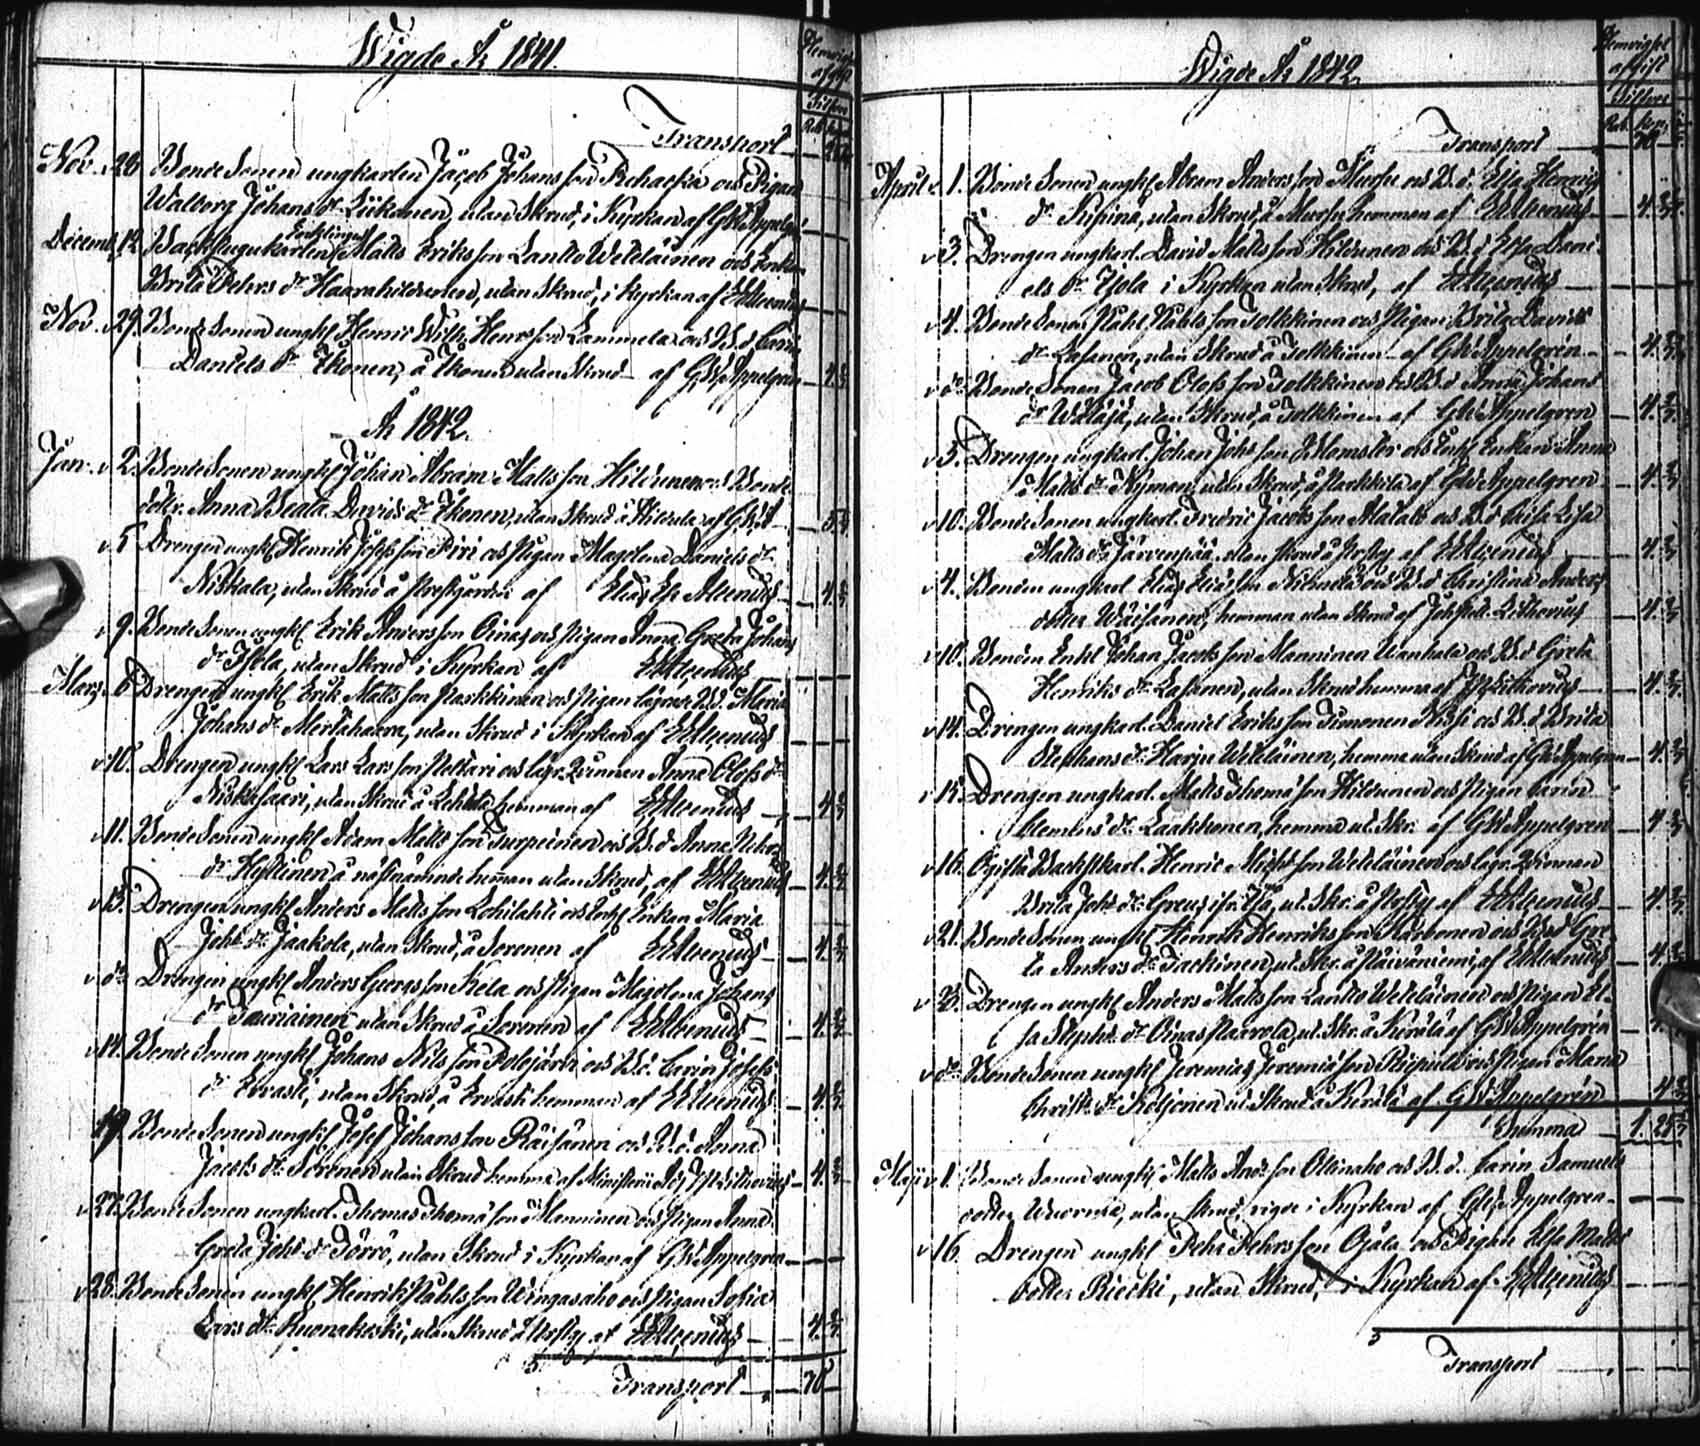 Wigde År 1841.
Transport
Nov. 28 Bonde Sonen ungkarlen Jacob Johans son och Pigan
Walborg Johans dr Liikanen, utan Skrud, i Kyrkan af GW Appelgr
Decemb. 12. Matts Eriks son Lantto Weteläinen och Enkan
Brita Pehrs dr Haarahiltunen, utan Skrud, i Kyrkan af EEAlcenius
Nov. 29. Bonde Sonen ungkl Henric Wilh. Henrs son Lammela och B.d. Carin
Daniels dr Ikonen, å Ikonen utan Skrud af GW Appelgren 4 2/7
År 1842.
Jan. v 2. Bonde Sonen ungkl Johan Abram Matts son Hildunen och Bonde
dottr. Anna Beata Davids dr Ikonen, utan Skrud å Hildula af GWA
v 5 Drengen ungkl Henrik Josefs son Piri och Pigan Magdlena Daniels dr
Niskala, utan Skrud å Prestgården af Elias Ep Alcenius 4 2/7
v 9. Bonde Sonen ungkl Erik Anders son Oinas och Pigan Anna Greta Johans
dr Isola, utan Skrud i Kyrkan af EEAlcenius
Mars 6 Drengen ungkl Erik Matts son Parkkinen och Pigan lägrade B.d. Maria
Johans dr Mertahaara, utan Skrud i Kyrkan af EEAlcenius
v 10. Drengen ungkl Lars Lars son Peltari och lägr. Qvinnan Anna Olofs dr
Niskasaari, utan Skrud å Lehtola hemman af EEAlcenius 4 2/7
v 11. Bonde Sonen ungkl Adam Matts son Turpeinen och B.d. Anna Pehrs
dr Heiskanen å näst nämnde heman utan Skrud, af EEAlcenius 4 2/7
v 13. Drengen ungkl Anders Matts son Lohilahti och Enkan Maria
Joh: dr Jaakola, utan Skrud, å Soronen af EEAlcenius 4 2/7
v do Drengen ungkl Anders Georgs son Kela och Pigan Magdlena Johans
dr Tauriainen utan Skrud å Soronen af EEAlcenius 4 2/7
v 14. Bonde Sonen ungkl Johans Nils son Polojärvi och B.d. Carin Josefs
dr Ervasti, utan Skrud, å Ervasti hemman af EEAlcenius 4 2/7
19. Bonde Sonen ungkl Josef Johans son Räisänen och B.d. Anna
Jacobs dr Soronen utan Skrud hemma af Ministerii Adj. JPLithovius 4 2/7
v 27. Bonde Sonen ungkarl. Thomas Thomæ son Manninen och Pigan Anna
Greta Joh: dr Törrö, utan Skrud i Kyrkan af GW Appelgren
v 28. Bonde Sonen ungkl Henrik Pahls son Wengasaho och Pigan Sofia
Lars dr Ruonakoski, utan Skrud å Prestg. af EEAlcenius 4 2/7
Transport 70
Wigde År 1842.
Hemvigsel
afgift
Silfver
Rub. kop.
Transport 70
April v 1. Bonde Sonen ungkl Abram Anders son Mursu och B.d. Elsa Henriks
dr Kipinä, utan Skrud, å Mursu hemman af EEAlcenius 4 2/7
v 3. Drengen ungkarl. David Matts son Hildunen och B.d Elsa Dani-
els dr Ijola i Kyrkan utan Skrud, af EEAlcenius
v 4. Bonde Sonen Pahl Pahls son Tolkkinen och Pigan Brita Davids
dr Lasanen, utan Skrud å Tolkkinen af GW Appelgren 4 2/7
v do Bonde Sonen Jacob Olofs son Tolkkinen och B.d Anna Johans
dr Wätäjä, utan Skrud, å Tolkkinen af GW Appelgren 4 2/7
v 5. Drengen ungkarl. Johan Johs son Blomster och Enkan Anna
Matts dr Nyman, utan Skrud, å Parkkila af GW Appelgren 4 2/7
v 10. Bonde Sonen ungkarl. Fredric Jacobs son Alatalo och B.d Caisa Lisa
Matts dr Järvenpää utan Skrud å Prestg af EEAlcenius 4 2/7
v 4. Bonden ungkarl Elias Elias son Niemelä och B.d Christina Anders
dotter Wäisänen, hemman utan Skrud af Joh Lithovius 4 2/7
v 10. Bonden Enkl Johan Jacobs son Manninen Wanhala och B.d Greta
Henriks dr Lasanen, utan Skrud hemma af JPLithovius 4 2/7
v 14. Drengen ungkarl. Daniel Eriks son Timonen Nissi och B.d Brita
Stephans dr Harju Weteläinen, hemma utan Skrud af GW Appelgren 4 2/7
v 15. Drengen ungkarl. Matts Thomæ son Hildunen och Pigan Carin
Clemens dr Laakkonen, hemma ut. Skr. af GW Appelgren 4 2/7
v 16. Ogifta Backstkarl. Henric Mich: son Weteläinen och lägr. Qvinnan
Brita Joh: dr Greus ifr. Ijo, ut. Skr. å Prestg. af EEAlcenius 4 2/7
v 21. Bonde Sonen ungkl Henrik Henriks son Kärbonen och B.d Gre-
ta Anders dr Tackinen, ut. Skr. å Päivärniemi, af EEAlcenius 4 2/7
v 23. Drengen ungkl Anders Matts son Lantto Weteläinen och Pigan El-
sa Steph: dr Oinas Naavola, ut. Skr. å Kärälä af GW Appelgren
v do Bonde Sonen ungkl Jeremias Jeremiæ son och Pigan Maria
Christ: dr Kosjonen ut Skrud å Kärälä af GW Appelgren 4 2/7
Summa 1. 25 5/7
Maji v 1. Bonde Sonen ungkl Matts And: son Ollinaho och B.d. Carin Samuels
dotter Wuorma, utan Skrud, vigde i Kyrkan af GW Appelgren
v 16. Drengen ungkl Pehr Pehrs son Ojala och Pigan Elsa Matts
dotter Riecki, utan Skrud, i Kyrkan af EEAlcenius
Transport